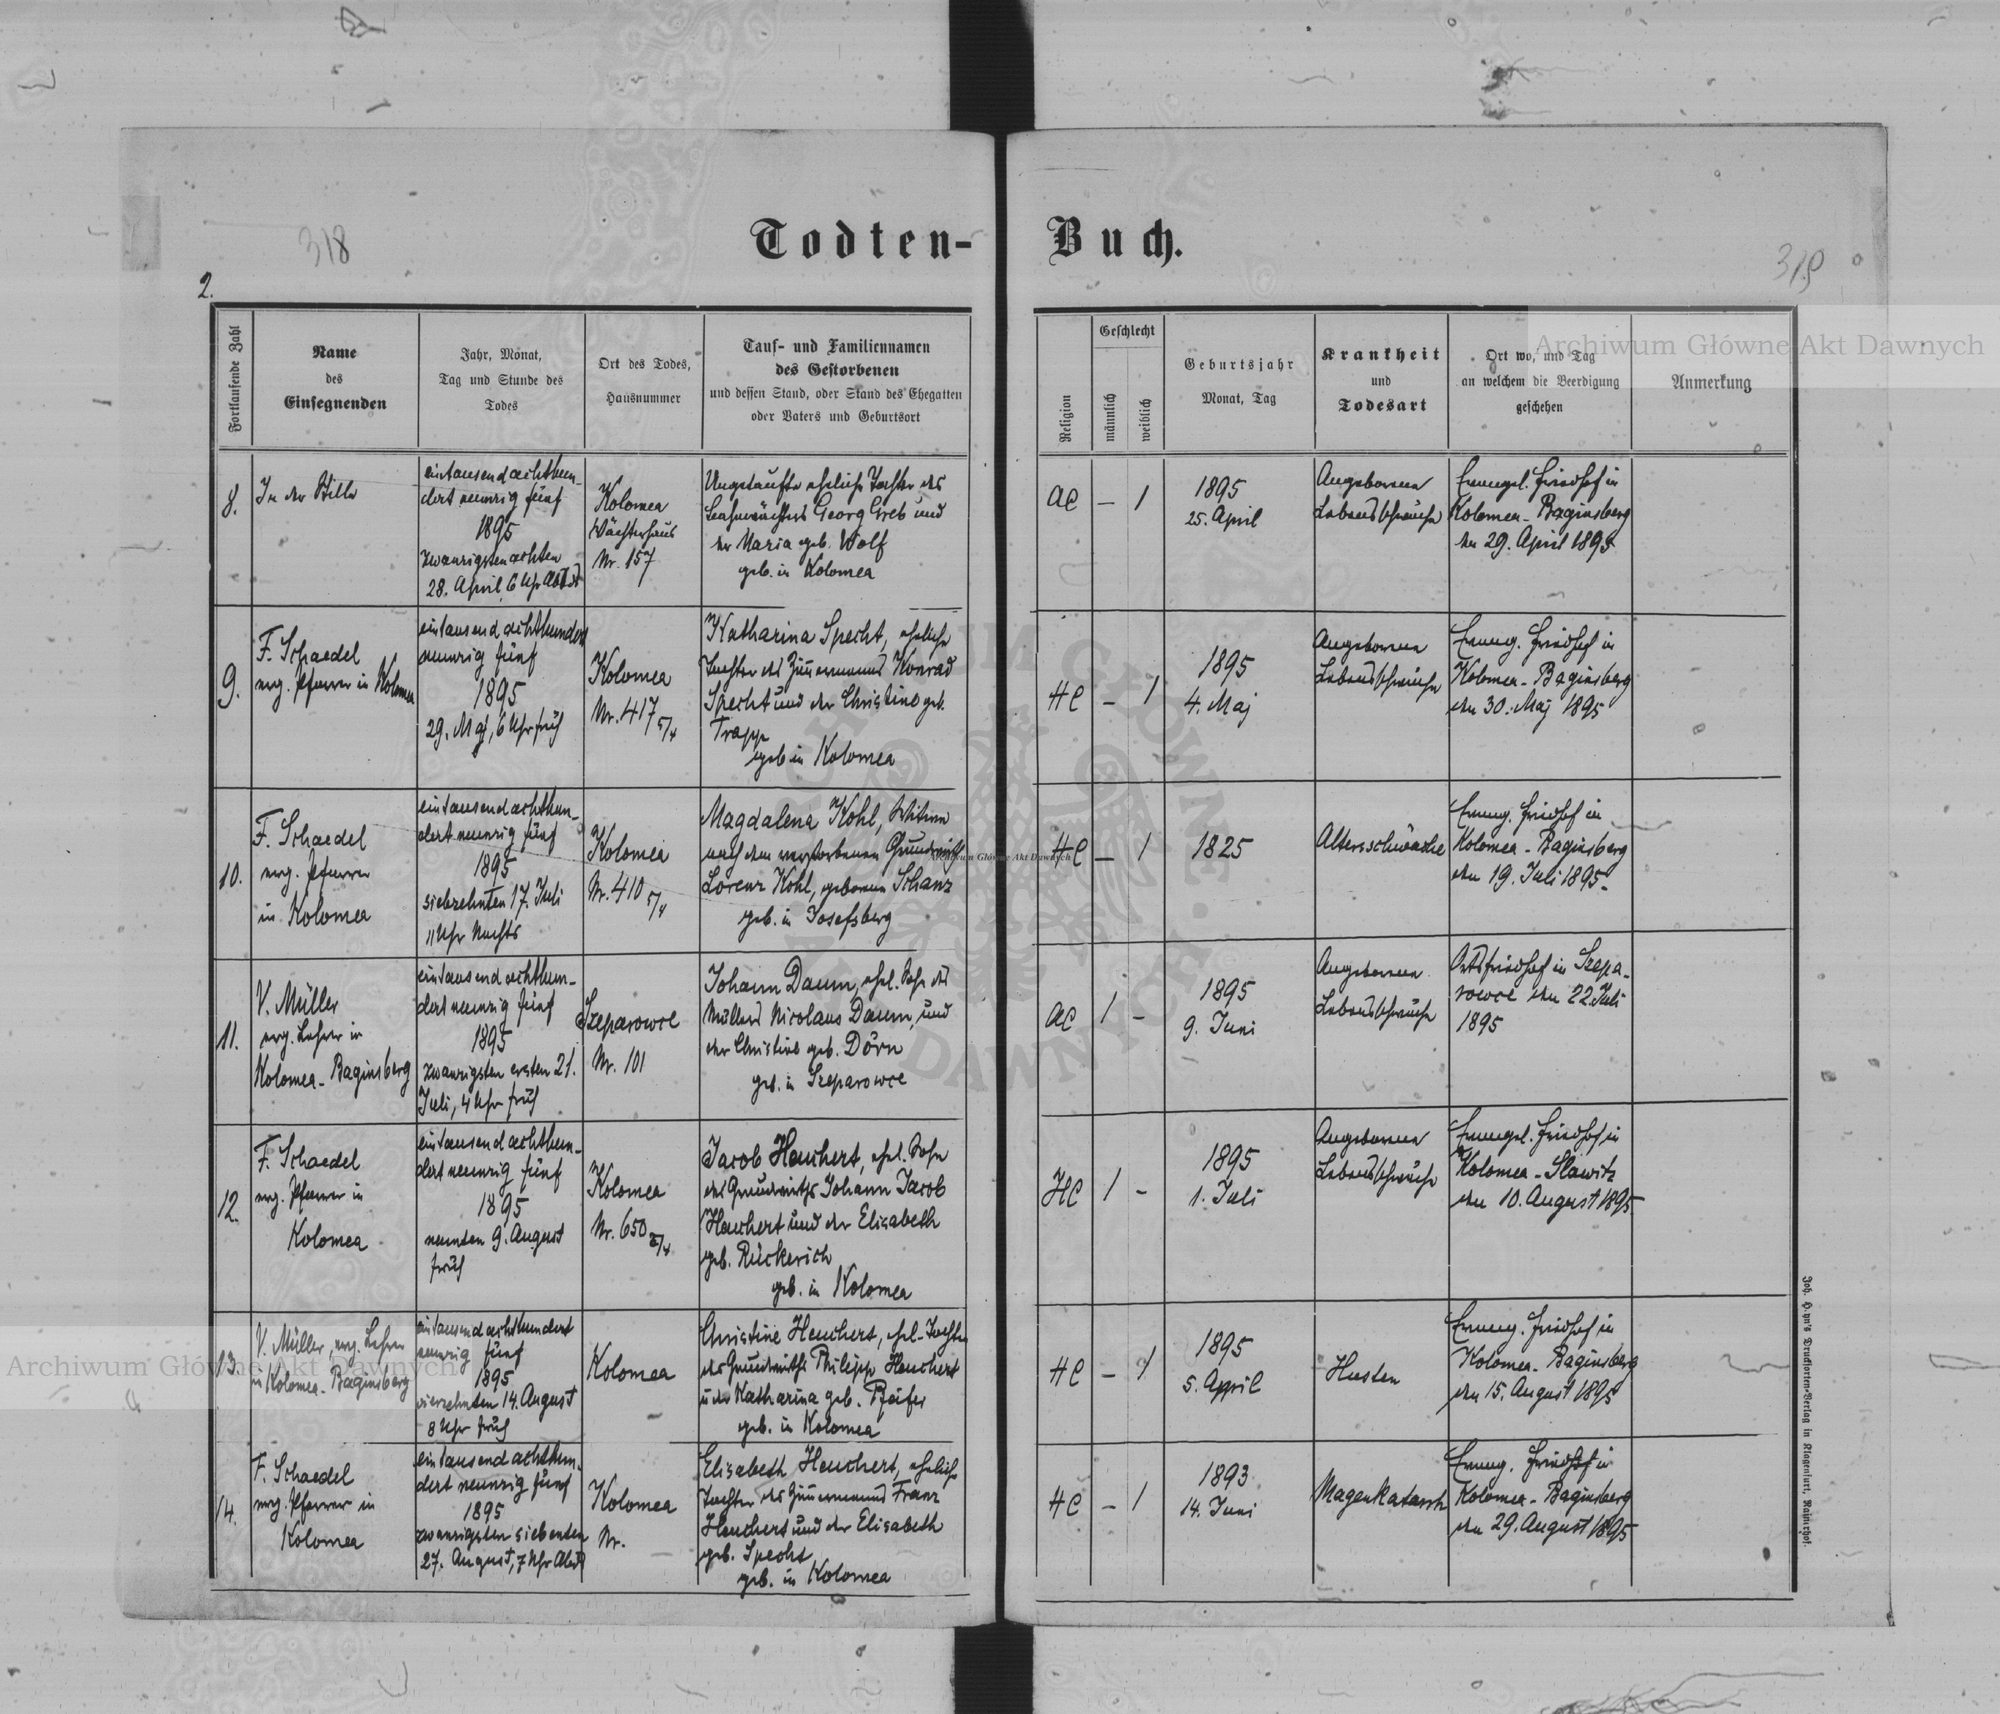 318
Todten-
Buch.
319
2.
Fortlaufende Zahl
Name
des
Einsegnenden
Jahr, Monat,
Tag und Stunde des
Todes
Ort des Todes,
Hausnummer
Tauf- und Familiennamen
des Gestorbenen
und dessen Stand, oder Stand des Ehegatten
oder Vaters und Geburtsort
Religion
Geschlecht
männlich
weiblich
Geburtsjahr
Monat, Tag
Krankheit
und
Todesart
Ort wo, und Tag
an welchem die Beerdigung
geschehen
Anmerkung
8.
In der Stille
eintausend achthun-
dert neunzig fünf
1895
zwanzigsten achten
28. April, 6 Uhr Abds
Kolomea
Wächterhaus
Nr. 157
Ungetaufte eheliche Tochter des
Bahnwächters Georg Greb und
der Maria geb. Wolf
geb. in Kolomea
AC
–
1
1895
25. April
Angeborene
Lebensschwäche
Evangel. Friedhof in
Kolomea - Baginsberg
den 29. April 1895
9.
F. Schaedel
evg. Pfarrer in Kolomea
eintausend achthundert
neunzig fünf
1895
29. Maj, 6 Uhr früh
Kolomea
Nr. 417 5/4
Katharina Specht, eheliche
Tochter des Zimmermanns Konrad
Specht und der Christine geb.
Trapp
geb in Kolomea
HC
–
1
1895
4. Maj
Angeborene
Lebensschwäche
Evang. Friedhof in
Kolomea - Baginsberg
den 30. Maj 1895
10.
F. Schaedel
evg. Pfarrer
in Kolomea
eintausend achthun-
dert neunzig fünf
1895
siebzehnten 17. Juli
11 Uhr Nachts
Kolomea
Nr. 410 5/4
Magdalena Kohl, Witwe
nach dem verstorbenen Grundwirth
Lorenz Kohl, geborene Schanz
geb. in Josefsberg
HC
–
1
1825
Altersschwäche
Evang. Friedhof in
Kolomea - Baginsberg
den 19. Juli 1895.
11.
V. Müller
evg. Lehrer in
Kolomea - Baginsberg
eintausend achthun-
dert neunzig fünf
1895
zwanzigsten ersten 21.
Juli, 4 Uhr früh
Szeparowce
Nr. 101
Johann Daum, ehel. Sohn des
Müllers Nicolaus Daum, und
der Christine geb. Dörn
geb. in Szeparowce
AC
1
–
1895
9. Juni
Angeborene
Lebensschwäche
Ortsfriedhof in Szepa-
rowce den 22. Juli
1895
12.
F. Schaedel
evg. Pfarrer in
Kolomea
eintausend achthun-
dert neunzig fünf
1895
neunten 9. August
früh
Kolomea
Nr. 650 2/4
Jacob Heuchert, ehel. Sohn
des Grundwirths Johann Jacob
Heuchert und der Elisabeth
geb. Rückerich
geb. in Kolomea
HC
1
–
1895
1. Juli
Angeborene
Lebensschwäche
Evangel. Friedhof in
Kolomea - Slawitz
den 10. August 1895
13.
V. Müller, evg. Lehrer
in Kolomea - Baginsberg
eintausend achthundert
neunzig fünf
1895
vierzehnten 14. August
8 Uhr früh
Kolomea
Christine Heuchert, ehel. Tochter
des Grundwirths Philipp Heuchert
u der Katharina geb. Pfeifer
geb. in Kolomea
HC
–
1
1895
5. April
Husten
Evang. Friedhof in
Kolomea - Baginsberg
den 15. August 1895
14.
F. Schaedel
evg. Pfarrer in
Kolomea
eintausend achthun-
dert neunzig fünf
1895
zwanzigsten siebenten
27. August, 7 Uhr Abds
Kolomea
Nr.
Elisabeth Heuchert, eheliche
Tochter des Zimmermanns Franz
Heuchert und der Elisabeth
geb. Specht
geb. in Kolomea
HC
–
1
1893
14. Juni
Magenkatarrh
Evang. Friedhof in
Kolomea - Baginsberg
den 29. August 1895
Joh. Leon's Drucksorten-Verlag in Klagenfurt, Rainerhof.
Archiwum Główne Akt Dawnych
Archiwum Główne Akt Dawnych
Archiwum Główne Akt Dawnych